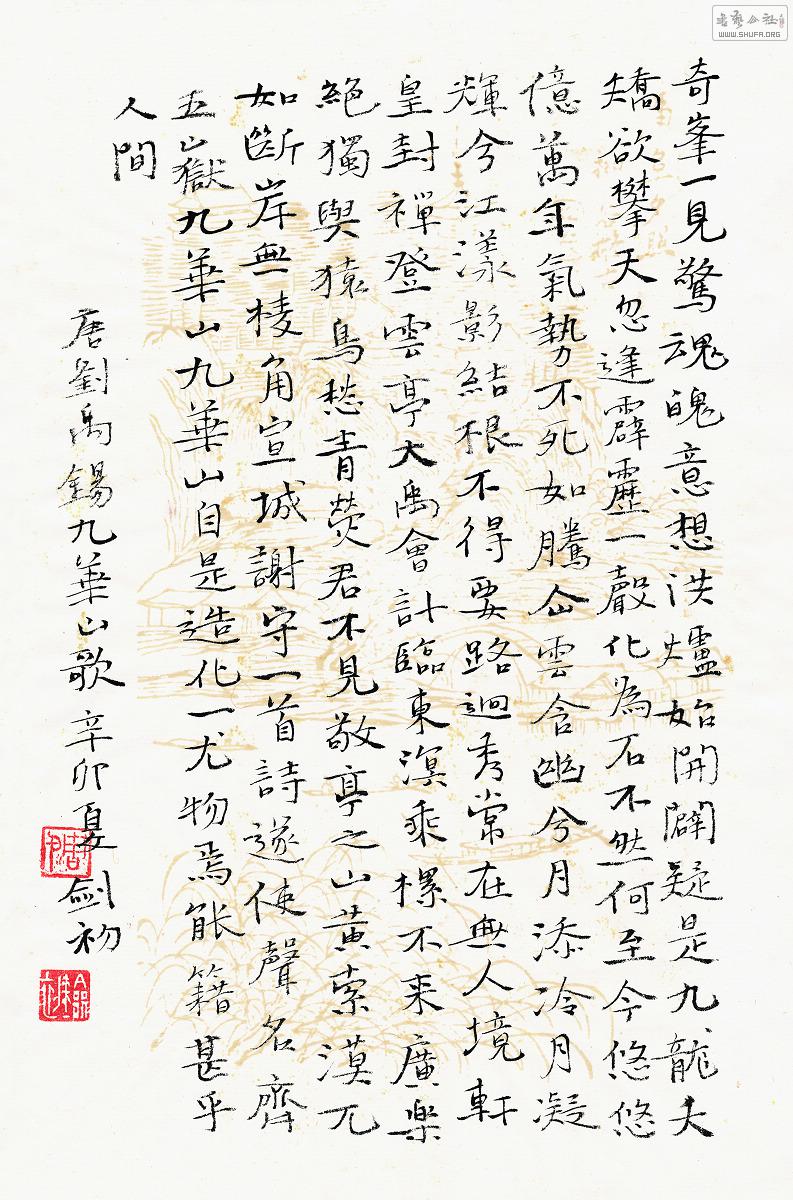 奇峯一見驚魂魄意想洪爐始開闢疑是九龍夭
矯欲攀天忽逢霹靂一聲化為石不然何至今悠悠
億萬年氣勢不死如騰仚雲含幽兮月添冷月凝
輝兮江漾影結根不得要路迥秀常在無人境軒
皇封禪登雲亭大禹會計臨東溟乘樏不来廣樂
絕獨與猿鳥愁青熒君不見敬亭之山黄索漠兀
如斷岸無棱角宣城謝守一首詩遂使聲名齊
五嶽九華山九華山自是造化一尤物焉能籍甚乎
人間
唐劉禹錫九華山歌辛卯夏劍初
書藝公社
WWW.SHUFA.ORG